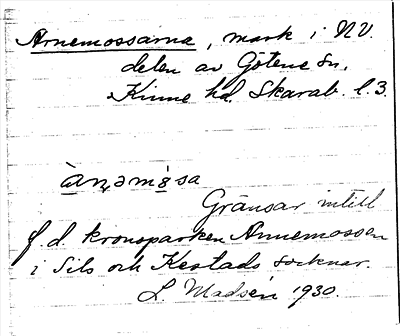 Arnemossarna, mark i NV.
delen av Götene sn,
Kinne hd, Skarab. l. 3.
à̀ṇəmø̀sa
Gränsar intill
f.d. kronoparken Annemossen
i Sils och Kestads socknar.
L. Madsén 1930.